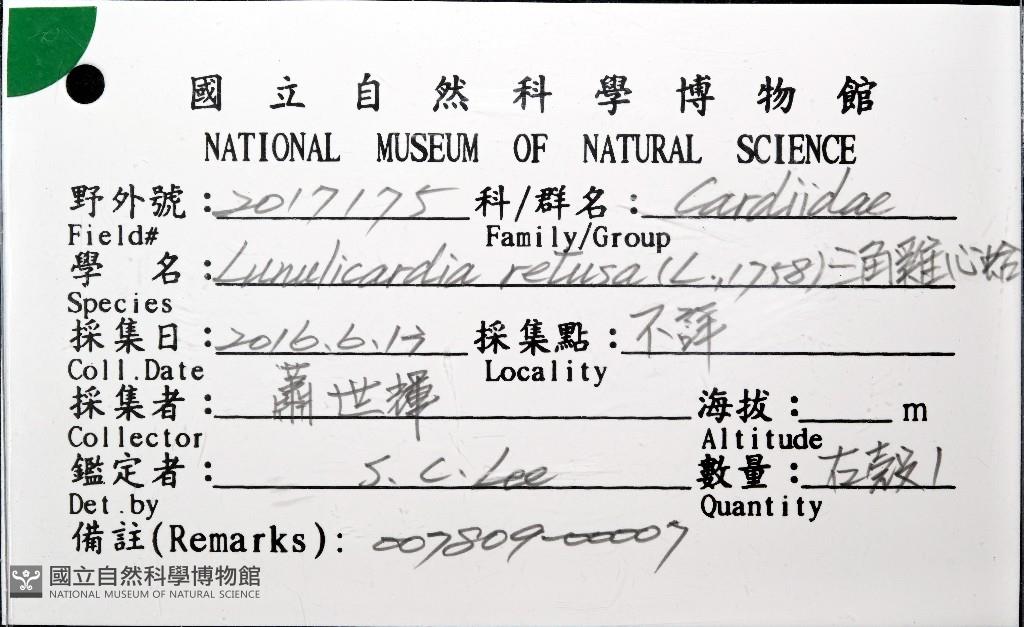 國立自然科學博物館
NATIONAL MUSEUM OF NATURAL SCIENCE
野外號:2017175 科/群名:Cardiidae
Field# Family/Group
學名:Lunulicardia retusa (L., 1758) 三角雞心蛤
Species
採集日:2016.6.17 採集點:不詳
Coll.Date Locality
採集者:蕭世輝 海拔: m
Collector Altitude
鑑定者:S. C. Lee 數量:左殼1
Det.by Quantity
備註(Remarks): 007809-00007
國立自然科學博物館
NATIONAL MUSEUM OF NATURAL SCIENCE